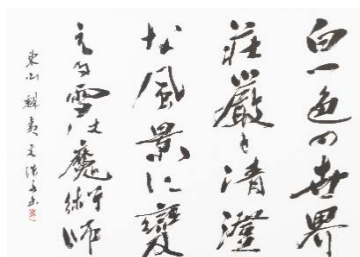 白一色の世界
荘厳で清澄
な風景に変
える雪は魔術師
東山魁夷